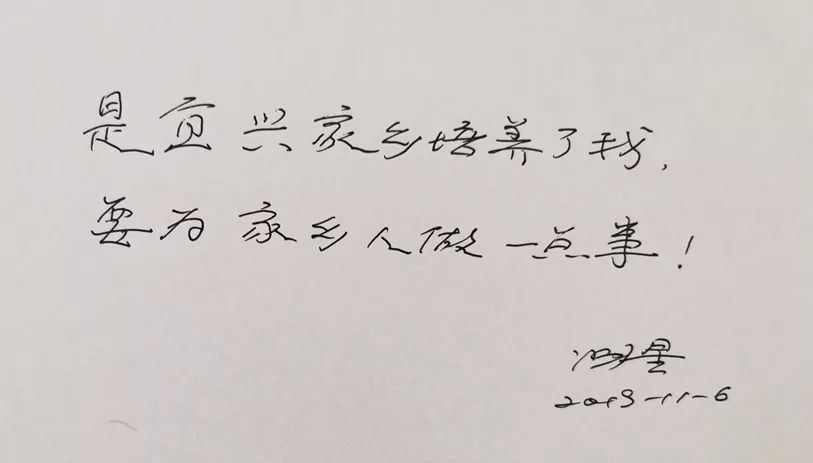 是宜兴家乡培养了我,
要为家乡人做一点事!
2019-11-6